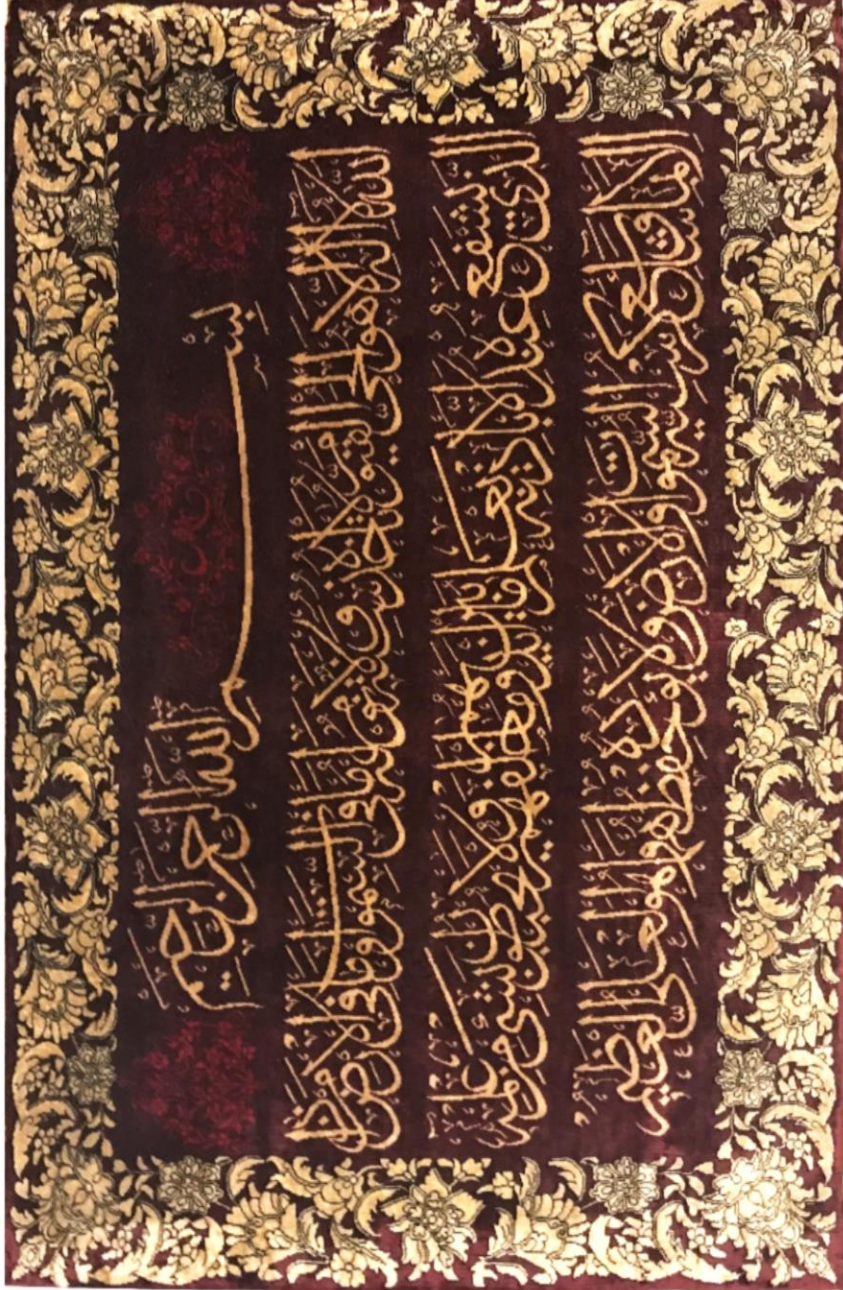 بِسْمِ اللَّهِ الرَّحْمَنِ الرَّحِيمِ
اللَّهُ لَا إِلَهَ إِلَّا هُوَ الْحَيُّ الْقَيُّومُ لَا تَأْخُذُهُ سِنَةٌ وَلَا نَوْمٌ لَهُ مَا فِي السَّمَوَاتِ وَمَا فِي الْأَرْضِ مَنْ ذَا
الَّذِي يَشْفَعُ عِنْدَهُ إِلَّا بِإِذْنِهِ يَعْلَمُ مَا بَيْنَ أَيْدِيهِمْ وَمَا خَلْفَهُمْ وَلَا يُحِيطُونَ بِشَيْءٍ مِنْ عِلْمِهِ
إِلَّا بِمَا شَاءَ وَسِعَ كُرْسِيُّهُ السَّمَوَاتِ وَالْأَرْضَ وَلَا يَئُودُهُ حِفْظُهُمَا وَهُوَ الْعَلِيُّ الْعَظِيمُ